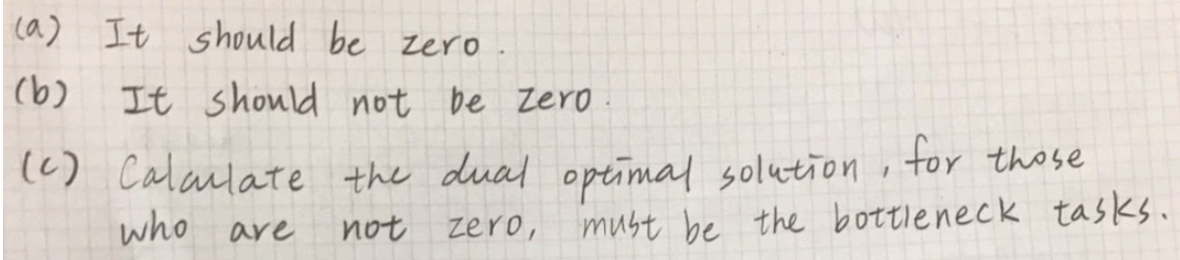 (a) It should be zero.
(b) It should not be zero.
(c) Calculate the dual optimal solution, for those
who are not zero, must be the bottleneck tasks.